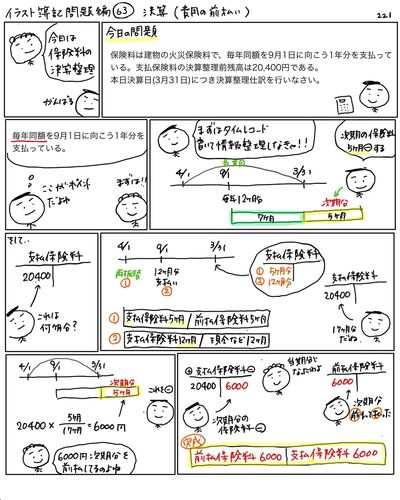 イラスト簿記問題編 63 決算 (費用の前払い) 221
今日は
保険料の
決算整理
がんばる
今日の問題
保険料は建物の火災保険料で、毎年同額を9月1日に向こう1年分を支払って
いる。支払保険料の決算整理前残高は20,400円である。
本日決算日(3月31日)につき決算整理仕訳を行いなさい。
毎年同額を9月1日に向こう1年分を
支払っている。
ここがポイント
だよね
まずは!!
まずはタイムコード
書いて情報整理しなきゃ!!
次期の保険料
5ヶ月⊖する
当期
4/1 9/1 3/31
毎年12ヶ月分
次期分
7ヶ月 5ヶ月
そして、
支払保険料
20400
これは
何ヶ月分?
4/1 9/1 3/31
再振替
①
12ヶ月分
支払い
②
支払保険料
① 5ヶ月分
② 12ヶ月分
① 支払保険料5ヶ月 / 前払保険料5ヶ月
② 支払保険料12ヶ月 / 現金など12ヶ月
支払保険料
20400
17ヶ月分
だね。
4/1 9/1 3/31
次期分
5ヶ月
これを⊖
20400 × 5ヶ月/17ヶ月 = 6000円
6000円次期分を
前払してるのよね
⊕ 支払保険料 ⊖
20400 6000
次期分の
保険料⊖
当期分で
なったわね
前払保険料
6000
次期分
前払って
完成
前払保険料 6000 支払保険料 6000